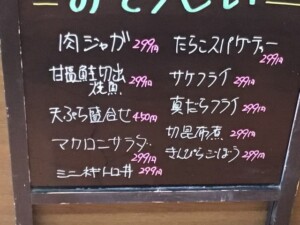 おそうざい
肉ジャガ 299円
甘塩鮭切出
焼魚 299円
天ぷら盛合せ 450円
マカロニーサラダ
299円
ミニネギトロ丼 299円
たらこスパゲティー
299円
サケフライ 299円
真たらフライ 299円
切昆布煮 299円
きんぴらごぼう 299円